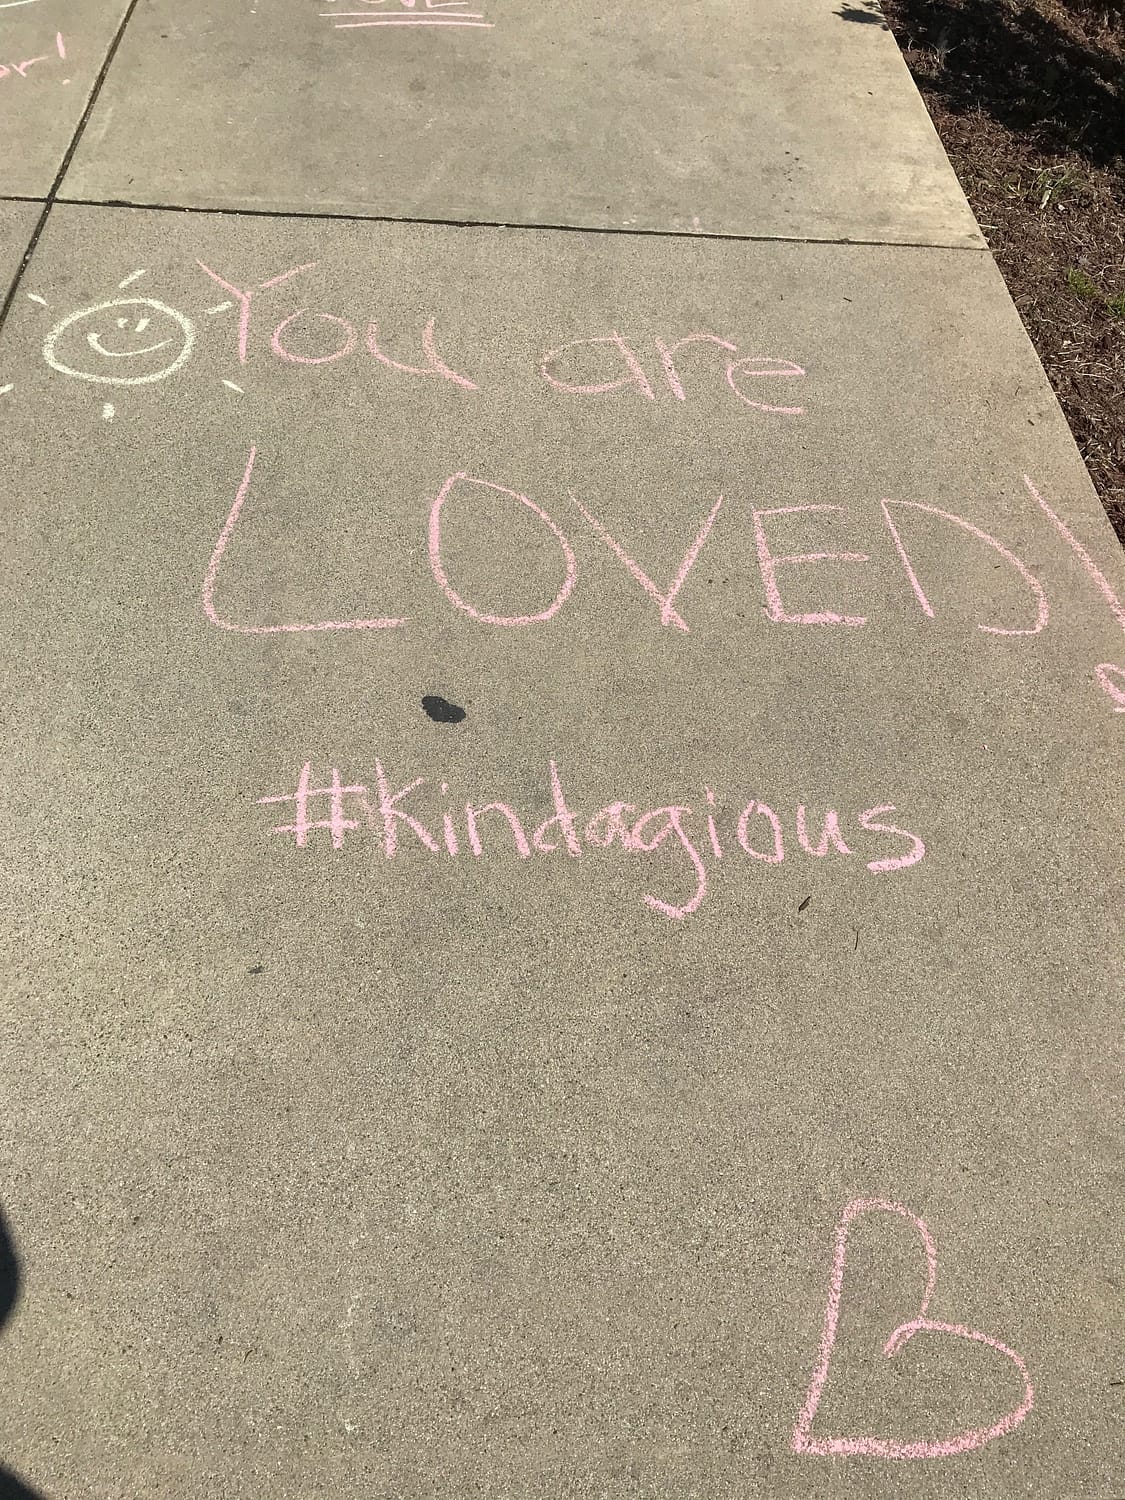 You are
LOVED!
#kindagious